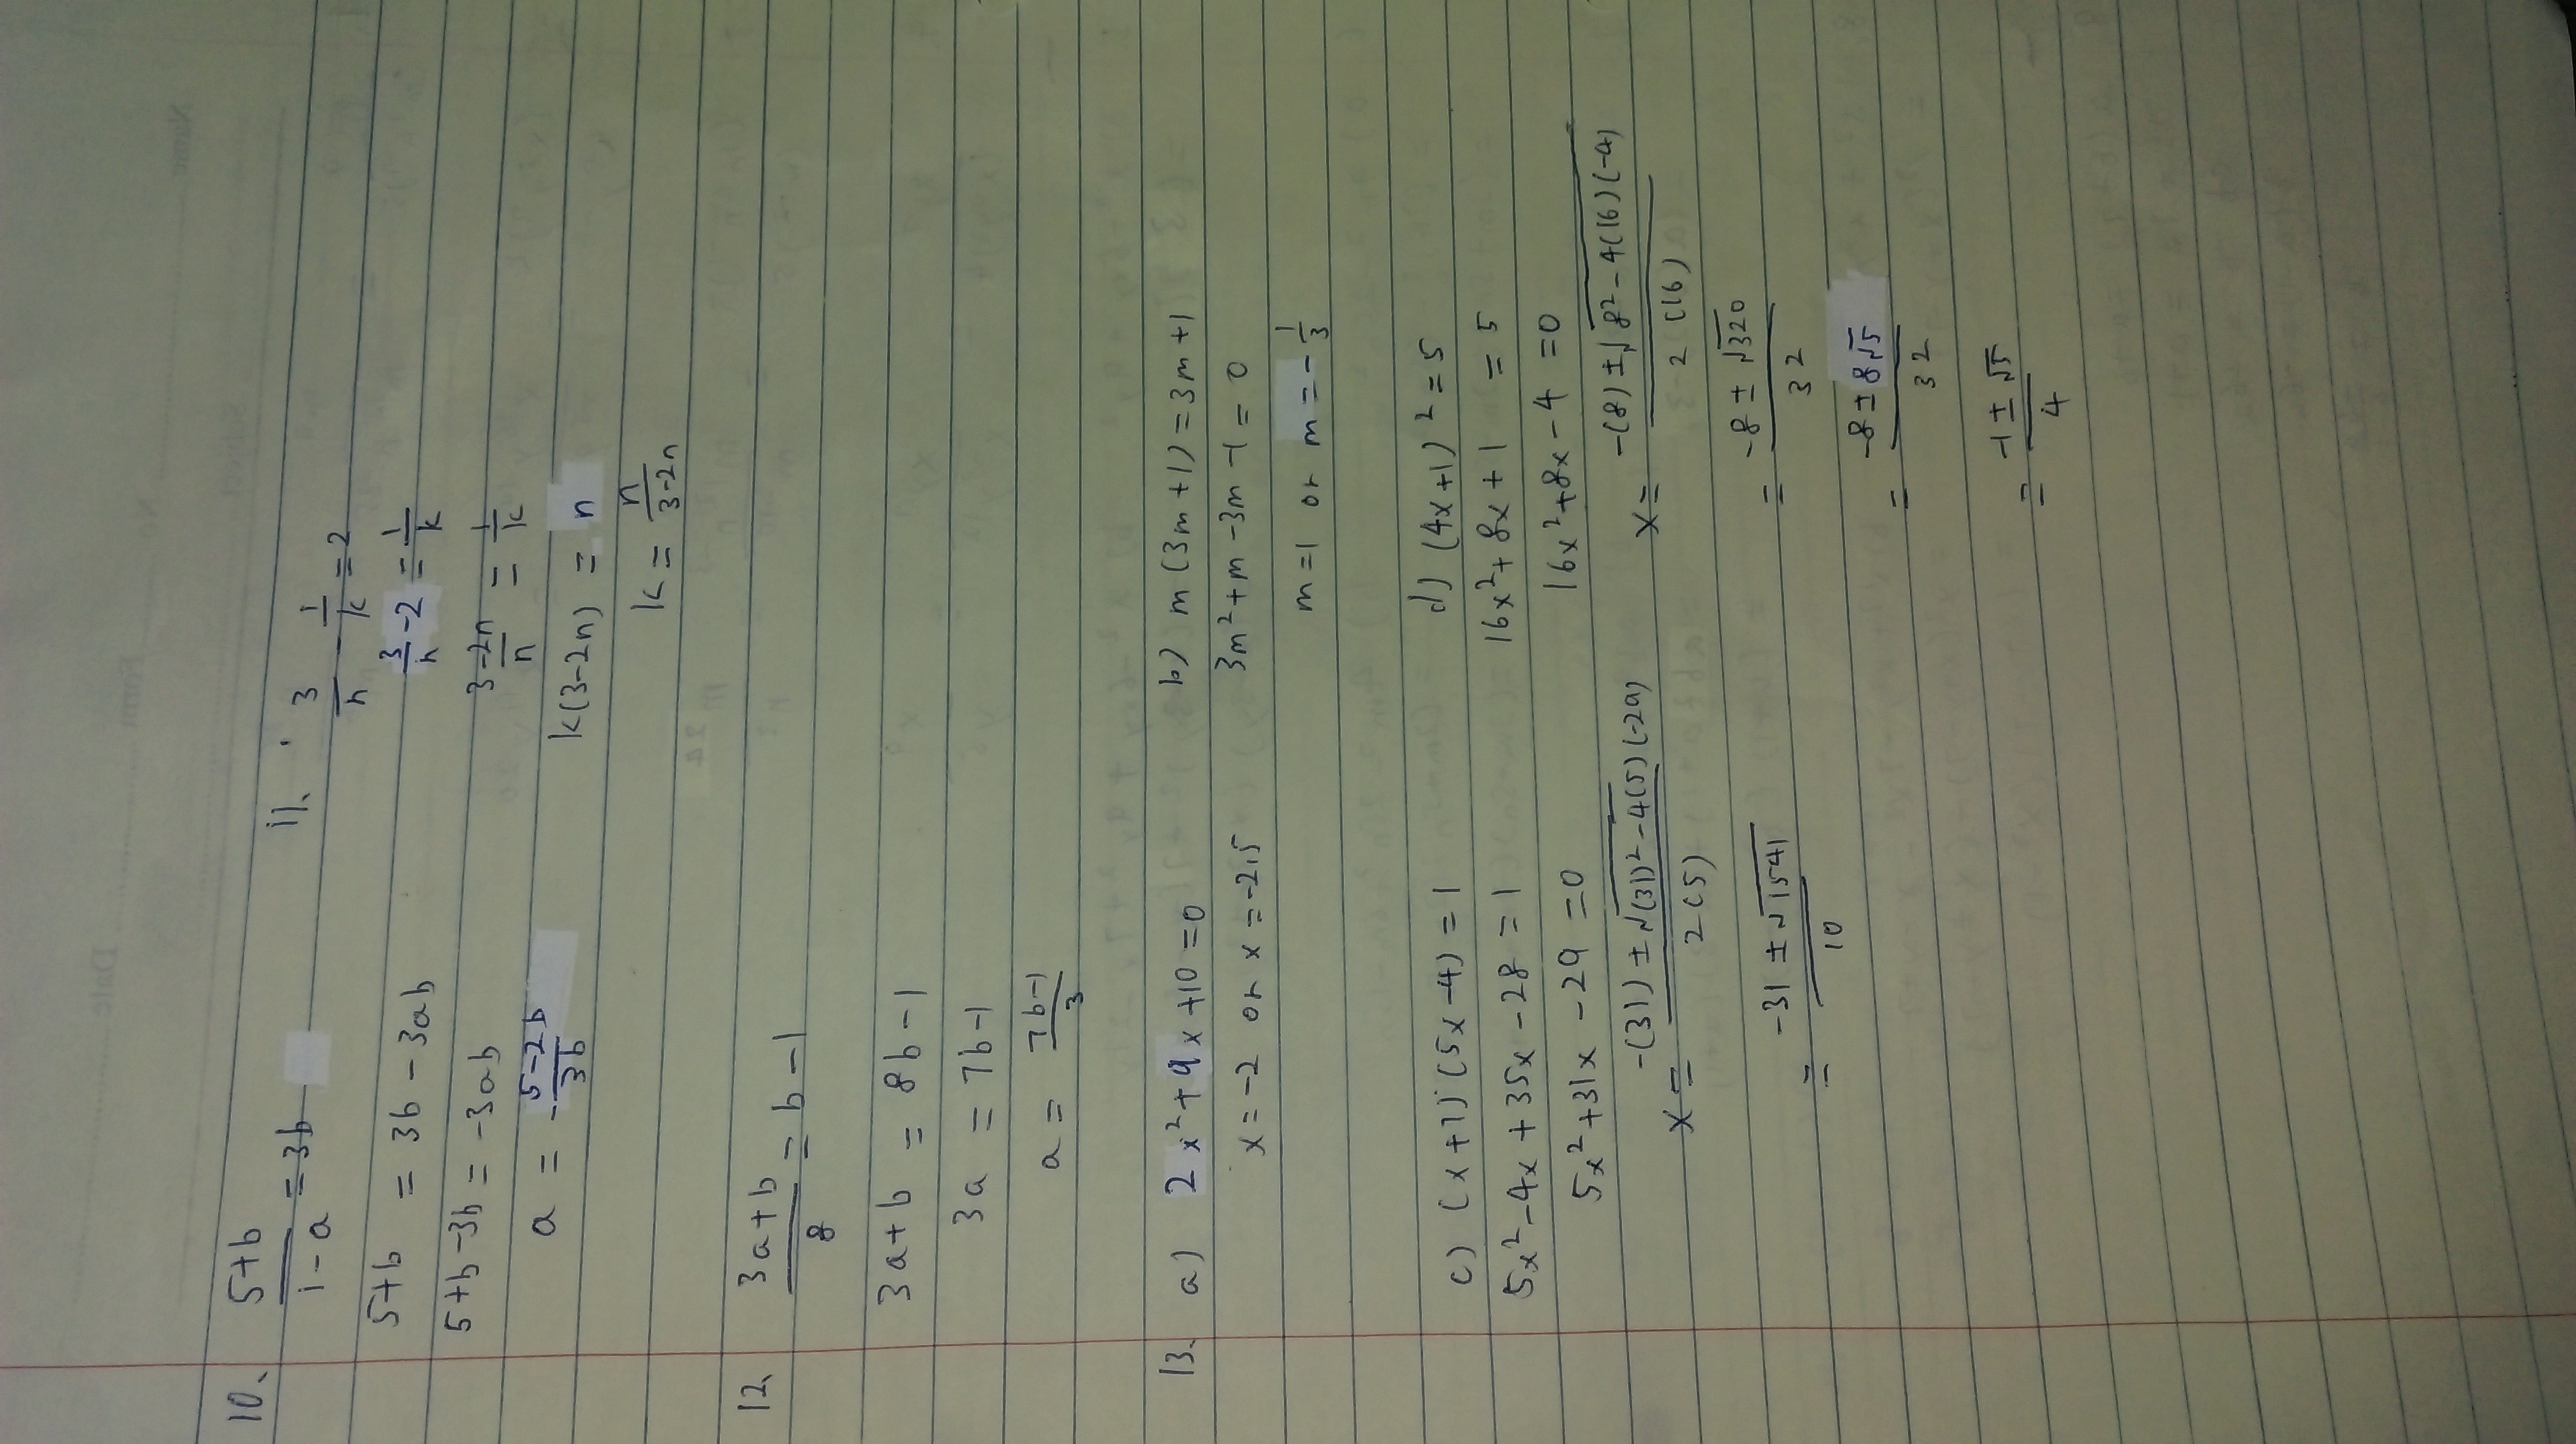 10. 5+b/1-a = 3b
5+b = 3b - 3ab
5+b-3b = -3ab
a = -5-2b/3b
11. 3/n - 1/k = 2
3/n - 2 = 1/k
3-2n/n = 1/k
k(3-2n) = n
k = n/3-2n
12. 3a+b/8 = b-1
3a+b = 8b-1
3a = 7b-1
a = 7b-1/3
13. a) 2x²+9x+10=0
x=-2 or x=-2.5
b) m(3m+1)=3m+1
3m²+m-3m-1=0
m=1 or m=-1/3
c) (x+1)(5x-4)=1
5x²-4x+35x-28=1
5x²+31x-29=0
x= -(31)±√(31)²-4(5)(-29)/2(5)
= -31±√1541/10
d) (4x+1)²=5
16x²+8x+1=5
16x²+8x-4=0
x= -(8)±√8²-4(16)(-4)/2(16)
= -8±√320/32
= -8±8√5/32
= -1±√5/4
Name
Form
Date